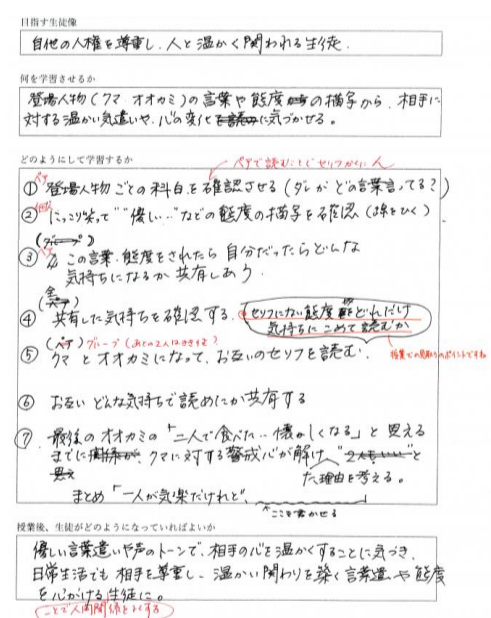 目指す生徒像
自他の人権を尊重し、人と温かく関われる生徒.
何を学習させるか
登場人物(クマ オオカミ)の言葉や態度の描写から、相手に
対する温かい気遣いや、心の変化に気づかせる。
どのようにして学習するか
ペアで読むことでセリフがない人
ペア
① 登場人物ごとの科白を確認させる(ダレがどの言葉言ってる?)
② にっこり笑って""優しい…"などの態度の描写を確認(線をひく)
(グループ)
③ ペア この言葉、態度をされたら自分だったらどんな
気持ちになるか共有しあう.
(全
④ 共有した気持ちを確認する.
セリフにない態度をどれだけ
気持ちにこめて読むか
授業での見取りのポイントですね
(ペア) グループ(あとの2人はききもの)
⑤ クマとオオカミになって、お互いのセリフを読む.
⑥ お互いどんな気持ちで読めたか共有する
⑦ 最後のオオカミの「二人で食べた‥懐かしくなる」と思える
までにクマに対する警戒心が解け、と
思え
た理由を考える。
まとめ「一人が気楽だけれど、
ここを書かせる
授業後、生徒がどのようになっていればよいか
優しい言葉遣いや声のトーンで、相手の心を温かくすることに気づき、
日常生活でも相手を尊重し、温かい関わりを築く言葉遣や態度
を心がける生徒に。
ことで人間関係をよくする